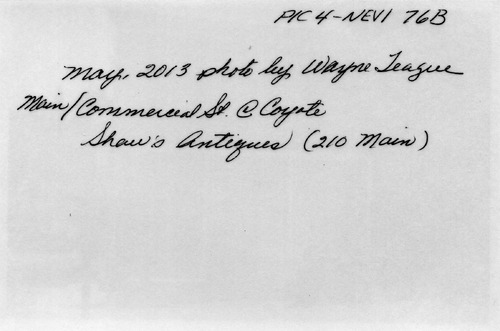 PIC 4-NEVI 76B
May, 2013 photo by Wayne League
Main/Commercial St. @ Coyote
Shaw's Antiques (210 Main)